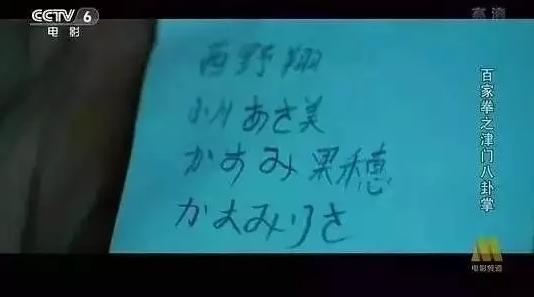 CCTV 6
电影
高清
西野翔
小川あさ美
かすみ果穂
かすみりさ
百家拳之津门八卦掌
电影频道